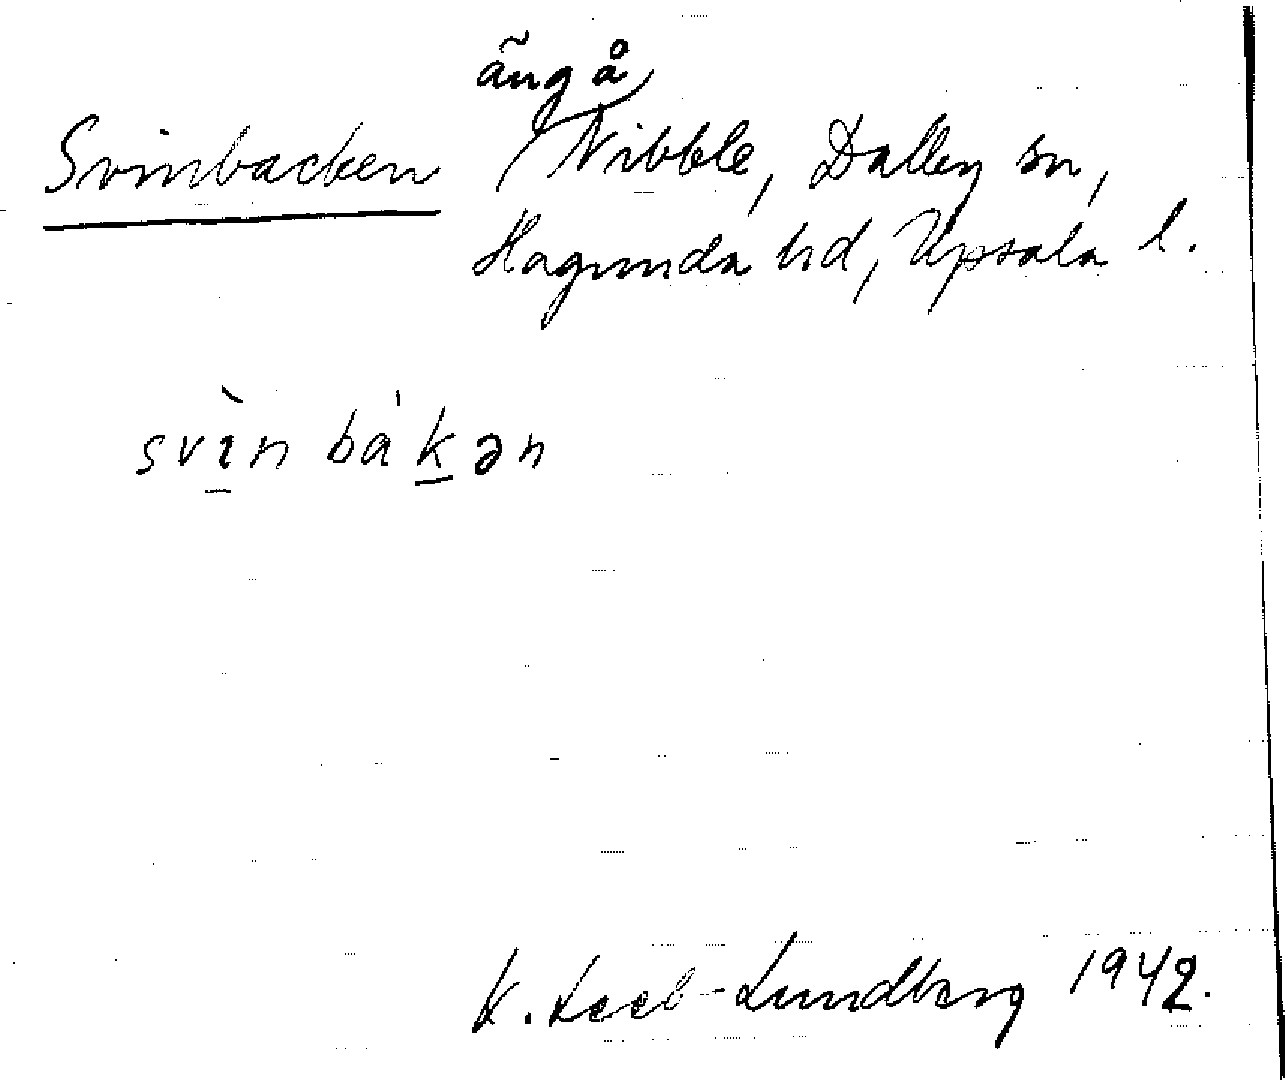 äng å
Svinbacken Nibble, Dalby sn,
Hagunda hd, Upsala l.
svìn bákən
K. Leeb-Lundberg 1942.